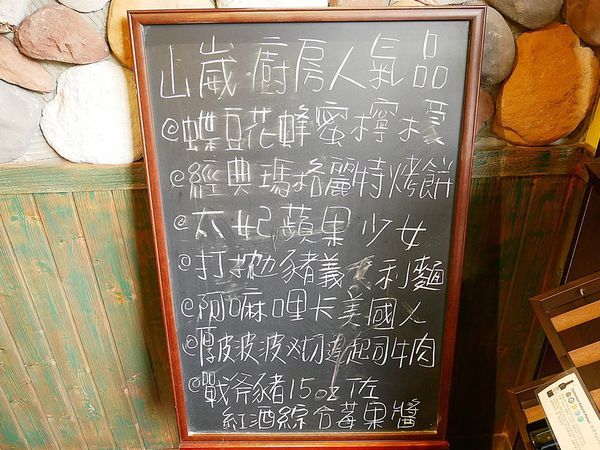 山崴·廚房人氣品
@蝶豆花蜂蜜檸檬
@經典瑪格麗特烤餅
@太妃蘋果少女
@打拋豬義大利麵
@阿嘛哩卡美國人
@厚皮波波必切達起司牛肉
@戰斧豬15oz佐
紅酒綜合莓果醬